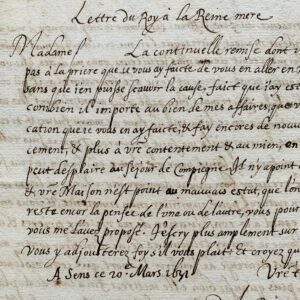 Lettre du Roy à la Reine mere
Madame La continuelle remise dont v
pas à la priere que ie vous ay faicte de vous en aller en
sans que i'en puisse scavoir la cause, faict que iay es
combien il importe au bien de mes affaires, que
cation que ie vous en ay faicte, & j'ay encores de nouv
cement, & plus à vre contentement & au mien, en
peut desplaire au sejour de Compiegne. Il n'y a point
& vre Maison n'est point en mauvais estat, que lon
reste encor la pensée de l'une ou de l'autre, vous pour
vous me l'avez proposé. J'escry plus amplement sur
vous y adjousterez foy s'il vous plaist et croyez qu
A Sens ce 20e Mars 1631 Vre t